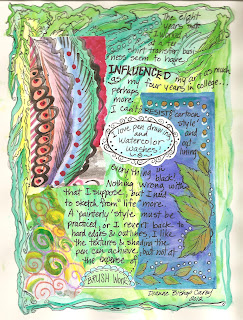 The eight
years that
I worked
shirt transfer busi-
ness seem to have
INFLUENCED my art as much
as my four years in college...
perhaps
more.
I can't RESIST cartoon
style!
and out
lining
I love pen drawings
and
watercolor
washes!
everything in
black!
Nothing wrong with
that I suppose, but I need
to sketch from "life" more.
A "painterly" style must be
practiced, or I revert back to
hard edges & outlines. I like
the textures & shading the
pen can achieve, but not at
the expense of
BRUSH WORK!
Dianne Bishop
2012